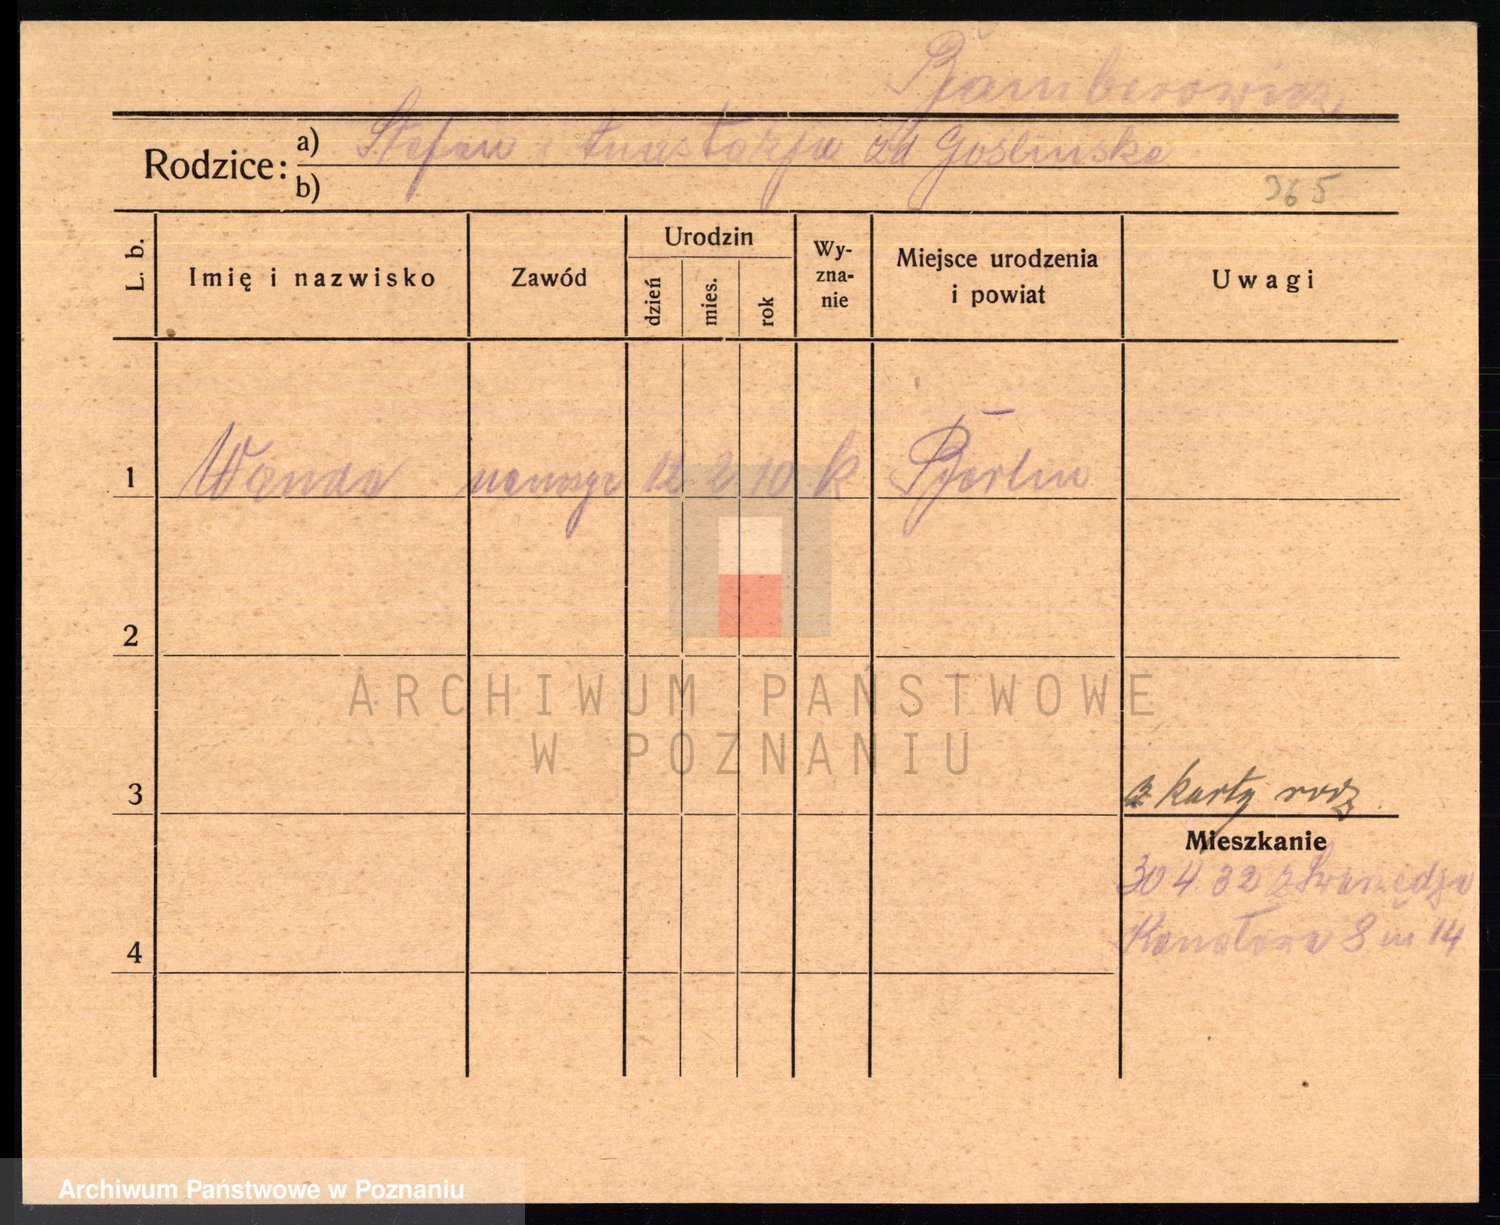 Bamberowicz
Rodzice: a) Stefan i Anastazja zd Goslinska
b)
365
L. b.
Imię i nazwisko
Zawód
Urodzin
dzień
mies.
rok
Wy-
zna-
nie
Miejsce urodzenia
i powiat
Uwagi
1 Wanda 12 2 10 k Berlin
2
ARCHIWUM PAŃSTWOWE
W POZNANIU
3 z karty rodz.
Mieszkanie
30 4 32 z Swarzędza
4 Kanałowa 8 m 14
Archiwum Państwowe w Poznaniu